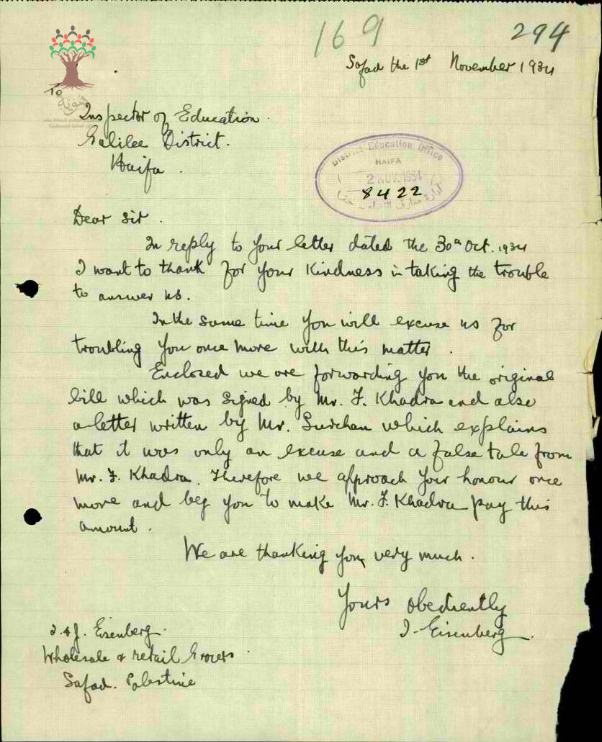 169
294
Safad the 1st November 1934
To
Inspector of Education.
Galilee District.
Haifa.
District Education Office
HAIFA
2 NOV. 1934
8422
Dear Sir.
In reply to your letter dated the 30th Oct. 1934
I want to thank for your kindness in taking the trouble
to answer us.
In the same time you will excuse us for
troubling you once more with this matter.
Enclosed we are forwarding you the original
bill which was signed by Mr. F. Khadra and also
a letter written by Mr. which explains
that it was only an excuse and a false tale from
Mr. F. Khadra. Therefore we approach your honour once
more and beg you to make Mr. F. Khadra pay this
amount.
We are thanking you very much.
Yours obediently
I. Eisenberg.
I. & J. Eisenberg.
Wholesale & retail Grocers.
Safad. Palestine